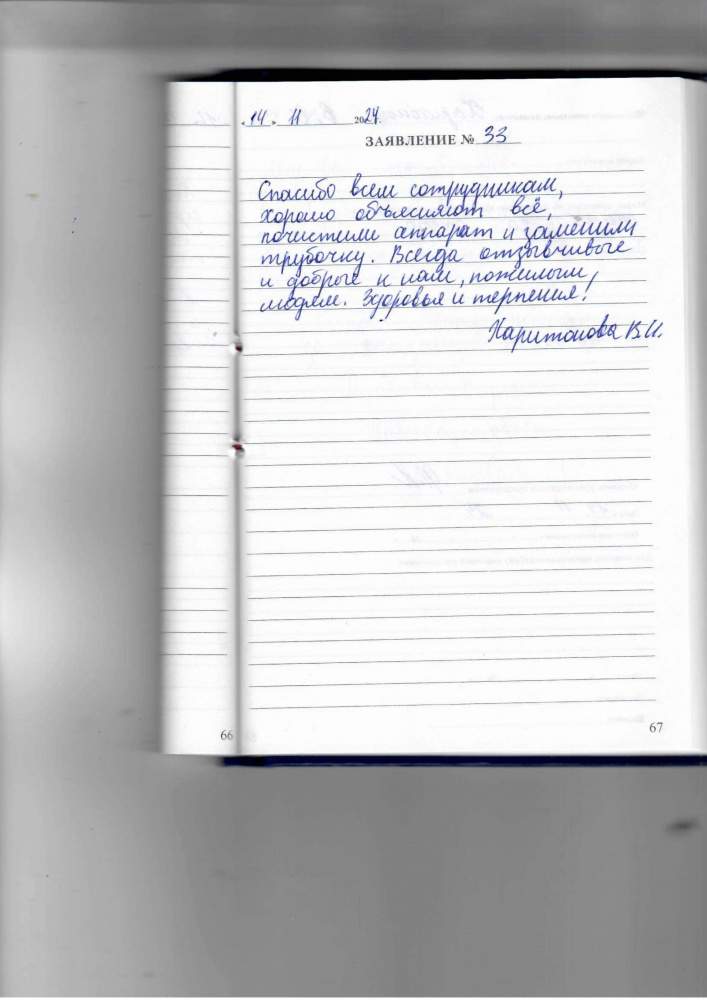 « 14 » 11 2024.
ЗАЯВЛЕНИЕ № 33
Спасибо всем сотрудникам,
хорошо объясняют всё,
почистили аппарат и заменили
трубочку. Всегда отзывчивые
и добрые к нам, пожилым
людям. Здоровья и терпения!
Харитонова В.И.
66
67